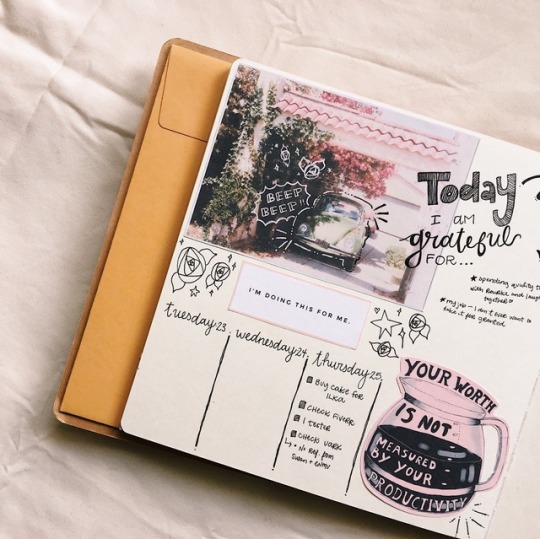 BEEP
BEEP!!
Today
I AM
grateful
FOR...
★ spending quality
with and
together
★ my job – I don't ever want to
take it for granted
I'M DOING THIS FOR ME.
tuesday 23. wednesday 24. thursday 25.
BUY CAKE FOR
CHECK FIVERR
1 TESTER
CHECK VARK
NO REF. FROM
YOUR WORTH
IS NOT
MEASURED
BY YOUR
PRODUCTIVITY